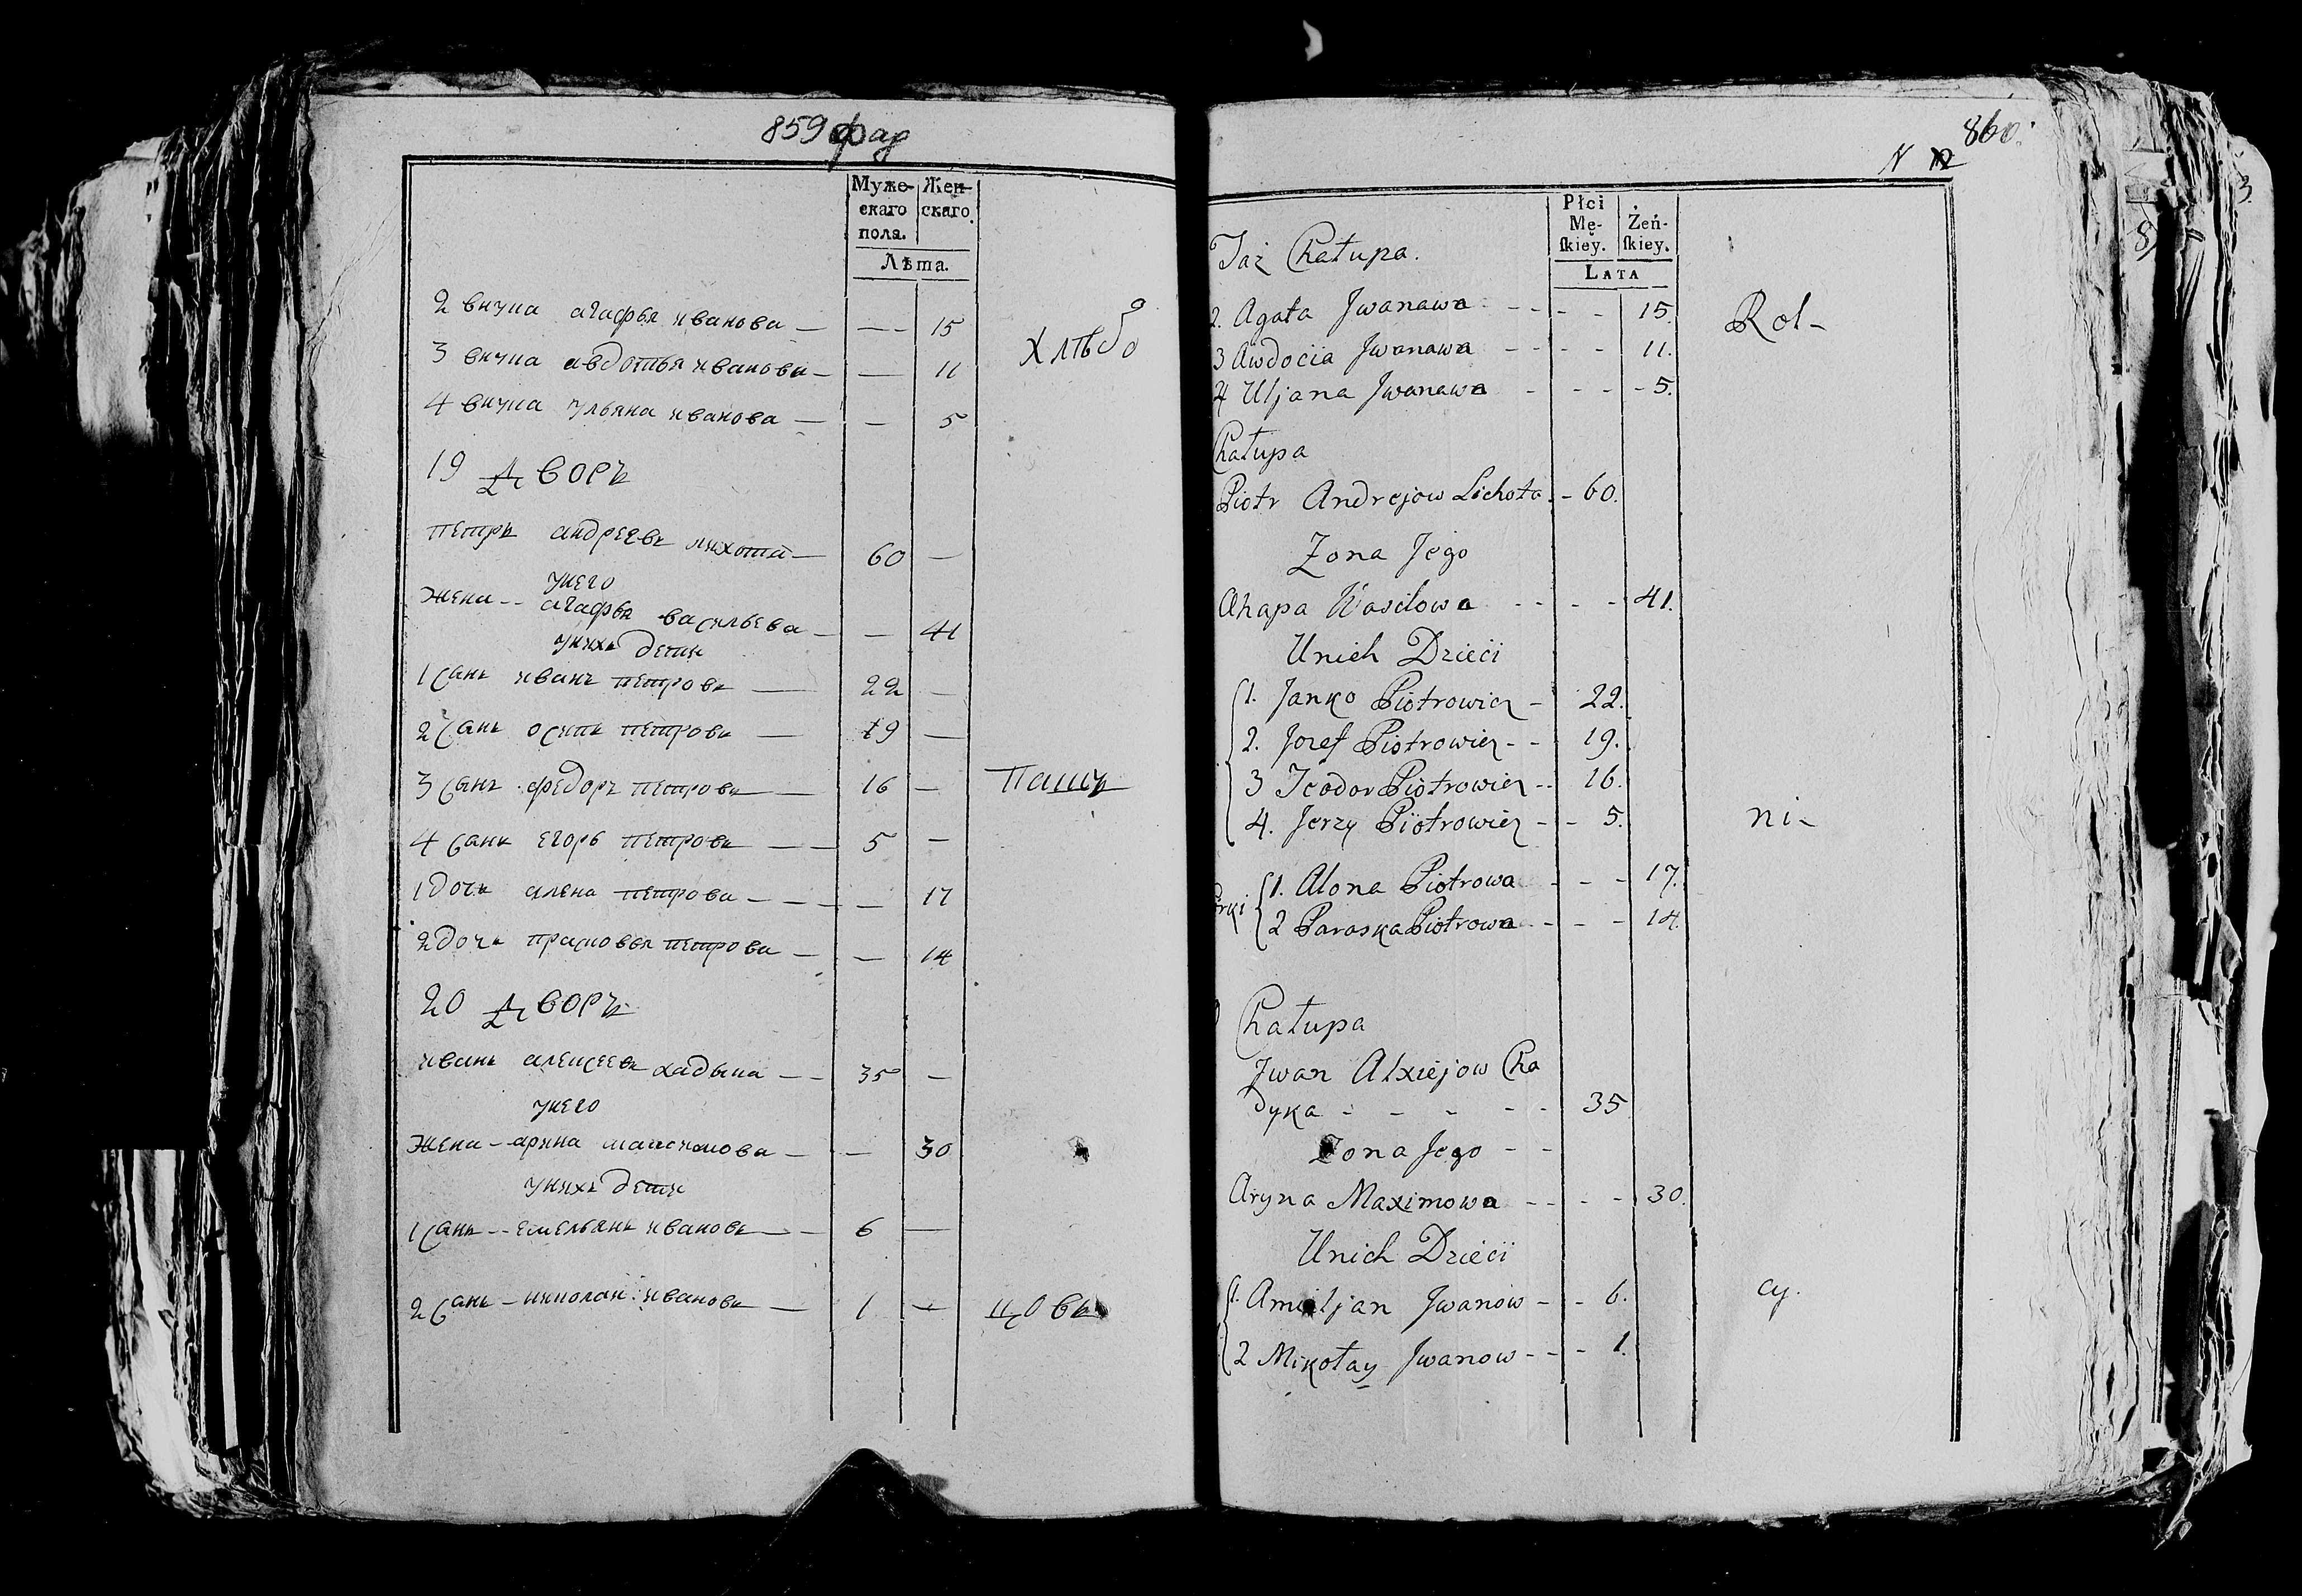 859
Муже- Жен-
скаго скаго.
пола.
Лѣта.
2 внука агафья иванова — — 15
хлѣбо
3 внука авдотья иванова — — 11
4 внука ульяна иванова — — 5
19 Дворъ
петръ андреевъ лихота — 60 —
у него
жена -- агафья васильева — — 41
у нихъ дети
1 сынъ иванъ петровъ — 22 —
2 сынъ осипъ петровъ — 19 —
3 сынъ федоръ петровъ — 16 —
пашъ
4 сынъ егоръ петровъ — 5 —
1 дочь алена петрова — — 17
2 дочь прасковья петрова — — 14
20 Дворъ
иванъ алексеевъ хадыка — 35 —
у него
жена — арина максимова — — 30
у нихъ дети
1 сынъ -- емельянъ ивановъ — 6 —
2 сынъ — николай ивановъ — 1 —
цовъ
860.
N
Płci
Mę- Żeń-
skiey. skiey.
Taż Chałupa.
LATA
2. Agata Jwanawa - - - - 15.
Rol-
3 Awdocia Jwanawa - - - - 11.
4 Uljana Jwanawa - - - - 5.
Chałupa
Piotr Andrejow Lichota. - 60.
Zona Jego
Ahapa Wasilowa - - - - 41.
Unich Dzieci
1. Janko Piotrowicz - 22.
2. Jozef Piotrowicz - - 19.
3 Teodor Piotrowicz - - 16.
4. Jerzy Piotrowicz - - 5.
ni-
1. Alona Piotrowa - - - 17.
2 Paraska Piotrowa - - - 14.
Chałupa
Jwan Alxiejow Cha
dyka - - - - - 35
Zona Jego - -
Aryna Maximowa - - - - 30.
Unich Dzieci
1. Amiljan Jwanow - - 6.
cy.
2 Mikołay Jwanow - - - 1.